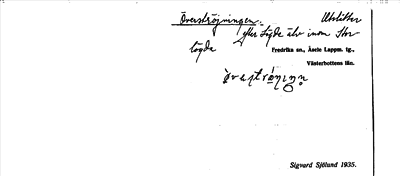 Överströjningen. Utslåtter
efter Lögda älv inom Stor
lögda
Fredrika sn., Åsele Lappm. tg.,
Västerbottens län.
Sigvard Sjölund 1935.